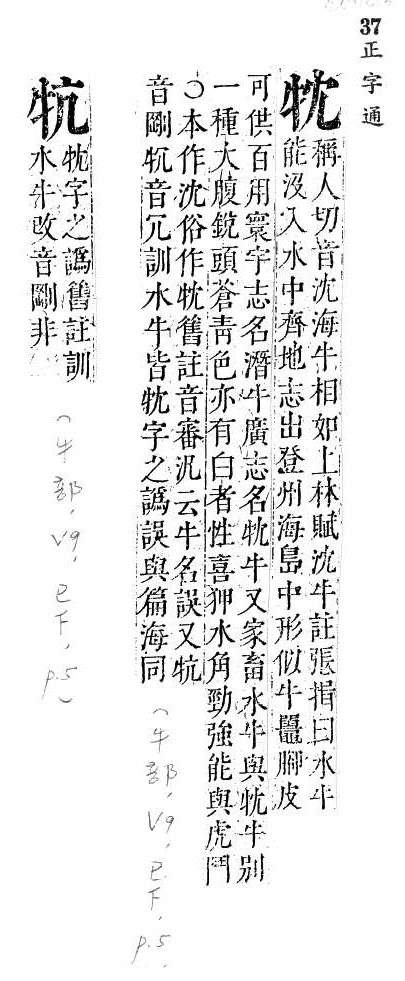 37 正字通
牞
稱人切音沈海牛相如上林賦沈牛註張揖曰水牛
能沒入水中齊地志出登州海島中形似牛鼉腳皮
可供百用寰宇志名潛牛廣志名牞牛又家畜水牛與牞牛別
一種大腹銳頭蒼青色亦有白者性喜狎水角勁強能與虎鬥
○本作沈俗作牞舊註音審汎云牛名誤又牨
音剛牨音冗訓水牛皆牞字之譌誤與篇海同
(牛部, V9, 巳下, p.5)
牨
牞字之譌舊註訓
水牛改音剛非
(牛部, V9, 巳下, p.5)